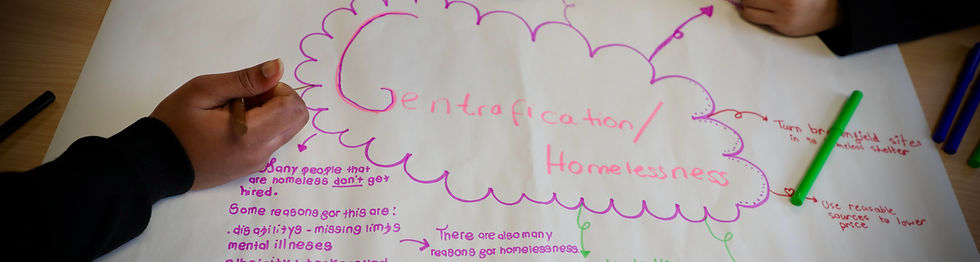 Gentrafication/
Homelessness
Many people that
are homeless don't get
hired.
Some reasons for this are:
. disabilitys - missing limbs
mental illnesses
There are also many
reasons for homelessness.
Turn brownfield sites
in to homeless shelter
Use reusable
sources to lower
price